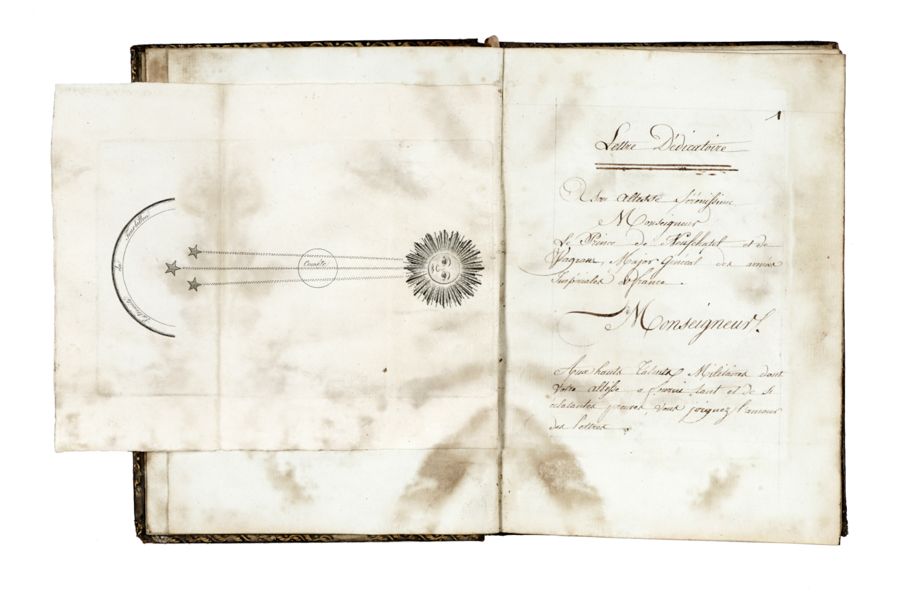 de Tourbillon
Comète
1
Lettre Dédicatoire
A Son Altesse Sérénissime
Monseigneur
Le Prince de Neufchatel et de
Vagram, Major Général des armées
Impériales de france.
Monseigneur.
Aux hauts talents Militaires dont
Votre Altesse a fournie tant et de si
éclatantes preuves, vous joignez l'amour
des lettres